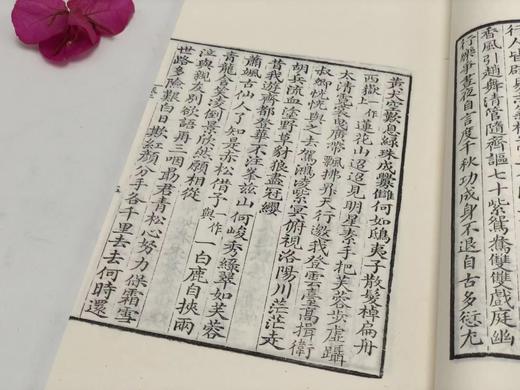 行人皆辟易志氣橫嵩
香風引趙舞清管隨齊謳七十紫鴛鴦雙雙戲庭幽
行樂爭晝夜自言度千秋功成身不退自古多愆尤
黃犬空歎息綠珠成釁讎何如鴟夷子散髮棹扁舟
西嶽一作蓮花山迢迢見明星素手把芙蓉步虛躡
太清霓裳曳廣帶飄拂昇天行邀我登雲臺高揖衛
叔卿恍恍與之去駕鴻凌紫冥俯視洛陽川茫茫走
胡兵流血塗野草豺狼盡冠纓
昔我遊齊都登華不注峯茲山何峻秀綠翠如芙蓉
蕭颯古仙人了知是赤松借予一作與一白鹿自挾兩
青龍含笑凌倒景欣然願相從
泣與親友別欲語再三咽勗君青松心努力保霜雪
世路多險艱白日欺紅顏分手各千里去去何時還